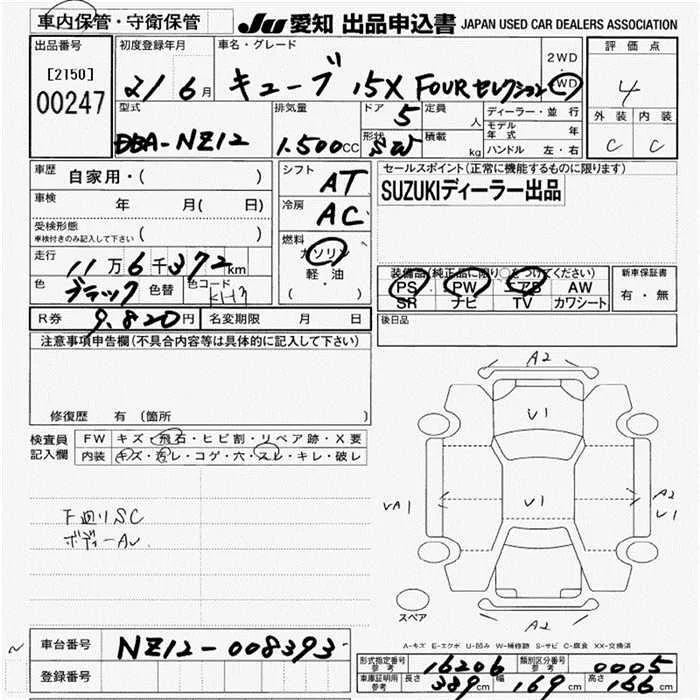 車内保管・守衛保管
JU 愛知 出品申込書 JAPAN USED CAR DEALERS ASSOCIATION
出品番号
[2150]
00247
初度登録年月
21/6月
車名・グレード
キューブ 15X FOURセレクション
2WD
4WD
評価点
4
外装 内装
C C
型式
DBA-NZ12
排気量
1.500CC
ドア
5
形状
SW
定員
人
積載
kg
ディーラー・並行
モデル年式 年
ハンドル 左・右
車歴 自家用・( )
車検 年 月( 日)
受検形態
車検付きのみ記入して下さい ( )
走行 11万6千372km
色 ブラック 色替 色コード KH3
シフト AT
冷房 AC
燃料
ガソリン
軽・油
( )
セールスポイント(正常に機能するものに限ります)
SUZUKIディーラー出品
装備品(純正品に限り○をつけてください)
PS PW エアB AW
SR ナビ TV カワシート
新車保証書
有・無
R券 9,820円 名変期限 月 日
後日品
注意事項申告欄(不具合内容等は具体的に記入して下さい)
修復歴 有(箇所 )
検査員記入欄
FW キズ・飛石・ヒビ割・リペア跡・X要
内装 キズ・汚レ・コゲ・穴・スレ・キレ・破レ
下回りSC
ボディーAU
A2
U1
U1
UA1
A2
U1
A2
スペア
A-キズ E-エクボ U-凹み W-補修跡 S-サビ C-腐食 XX-交換済
車台番号 NZ12-008393
登録番号
形式指定番号 参考 16206 類別区分番号 参考 0005
車庫証明用 参考 長さ 389cm 幅 169cm 高さ 166cm